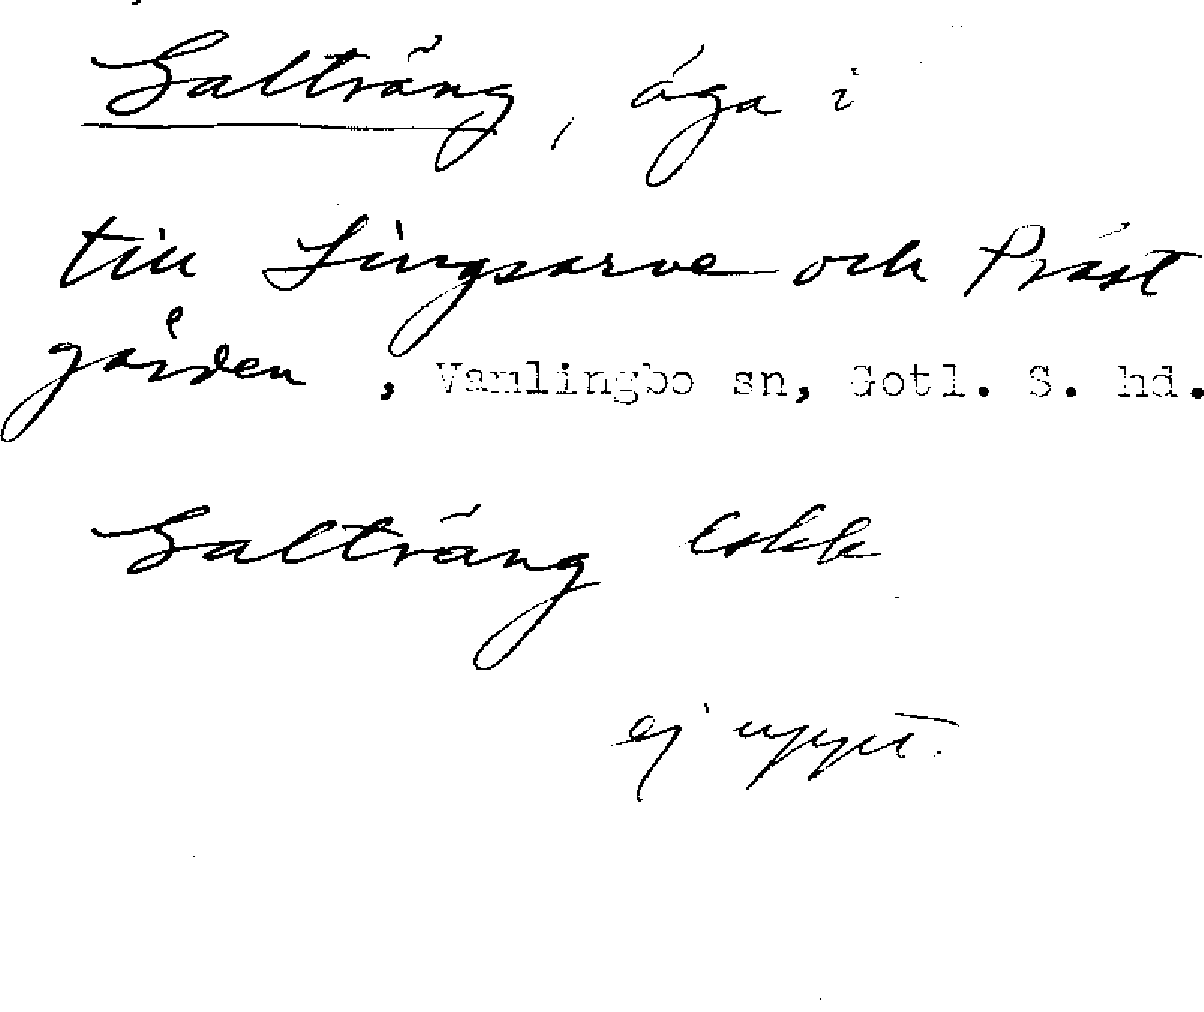 Salträng, äga i
till Lingsarve och Präst
gården, Vamlingbo sn, Gotl. S. hd.
Salträng
ej uppt.